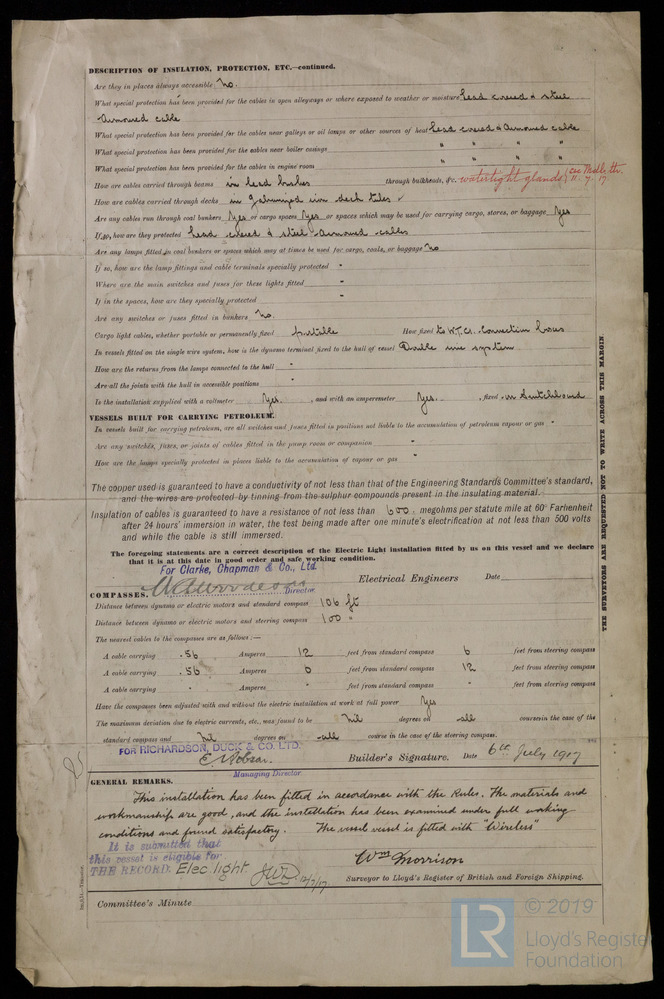 DESCRIPTION OF INSULATION, PROTECTION, ETC.—continued.
Are they in places always accessible No.
What special protection has been provided for the cables in open alleyways or where exposed to weather or moisture Lead covered & steel
armoured cable
What special protection has been provided for the cables near galleys or oil lamps or other sources of heat lead covered & armoured cable
What special protection has been provided for the cables near boiler casings " " "
What special protection has been provided for the cables in engine room " " "
How are cables carried through beams in lead bushes through bulkheads, &c. watertight glands
How are cables carried through decks in galvanized iron deck tubes
Are any cables run through coal bunkers Yes or cargo spaces Yes or spaces which may be used for carrying cargo, stores, or baggage Yes
If so, how are they protected lead covered & steel armoured cables
Are any lamps fitted in coal bunkers or spaces which may at times be used for cargo, coals, or baggage No
If so, how are the lamp fittings and cable terminals specially protected -
Where are the main switches and fuses for these lights fitted -
If in the spaces, how are they specially protected -
Are any switches or fuses fitted in bunkers No.
Cargo light cables, whether portable or permanently fixed portable How fixed to W.T.C.I. connection boxes
In vessels fitted on the single wire system, how is the dynamo terminal fixed to the hull of vessel Double wire system
How are the returns from the lamps connected to the hull -
Are all the joints with the hull in accessible positions -
Is the installation supplied with a voltmeter Yes. , and with an amperemeter Yes. , fixed on Switchboard
VESSELS BUILT FOR CARRYING PETROLEUM.
In vessels built for carrying petroleum, are all switches and fuses fitted in positions not liable to the accumulation of petroleum vapour or gas -
Are any switches, fuses, or joints of cables fitted in the pump room or companion -
How are the lamps specially protected in places liable to the accumulation of vapour or gas -
The copper used is guaranteed to have a conductivity of not less than that of the Engineering Standards Committee's standard,
and the wires are protected by tinning from the sulphur compounds present in the insulating material.
Insulation of cables is guaranteed to have a resistance of not less than 600 megohms per statute mile at 60° Farhenheit
after 24 hours' immersion in water, the test being made after one minute's electrification at not less than 500 volts
and while the cable is still immersed.
The foregoing statements are a correct description of the Electric Light installation fitted by us on this vessel and we declare
that it is at this date in good order and safe working condition.
For Clarke, Chapman & Co., Ltd.
Director Electrical Engineers Date
COMPASSES.
Distance between dynamo or electric motors and standard compass 106 ft
Distance between dynamo or electric motors and steering compass 100 "
The nearest cables to the compasses are as follows:—
A cable carrying .56 Amperes 12 feet from standard compass 6 feet from steering compass
A cable carrying .56 Amperes 6 feet from standard compass 12 feet from steering compass
A cable carrying - Amperes - feet from standard compass - feet from steering compass
Have the compasses been adjusted with and without the electric installation at work at full power Yes
The maximum deviation due to electric currents, etc., was found to be Nil degrees on all course in the case of the
standard compass and Nil degrees on all course in the case of the steering compass.
FOR RICHARDSON, DUCK & CO. LTD.
Builder's Signature. Date 6th July 1917
Managing Director
GENERAL REMARKS.
This installation has been fitted in accordance with the Rules. The materials and
workmanship are good, and the installation has been examined under full working
conditions and found satisfactory. The vessel vessel is fitted with "Wireless"
It is submitted that
this vessel is eligible for
THE RECORD. Elec. light. JWD 12/7/17
Wm Morrison
Surveyor to Lloyd's Register of British and Foreign Shipping.
Committee's Minute
THE SURVEYORS ARE REQUESTED NOT TO WRITE ACROSS THIS MARGIN.
LR
© 2019
Lloyd's Register
Foundation